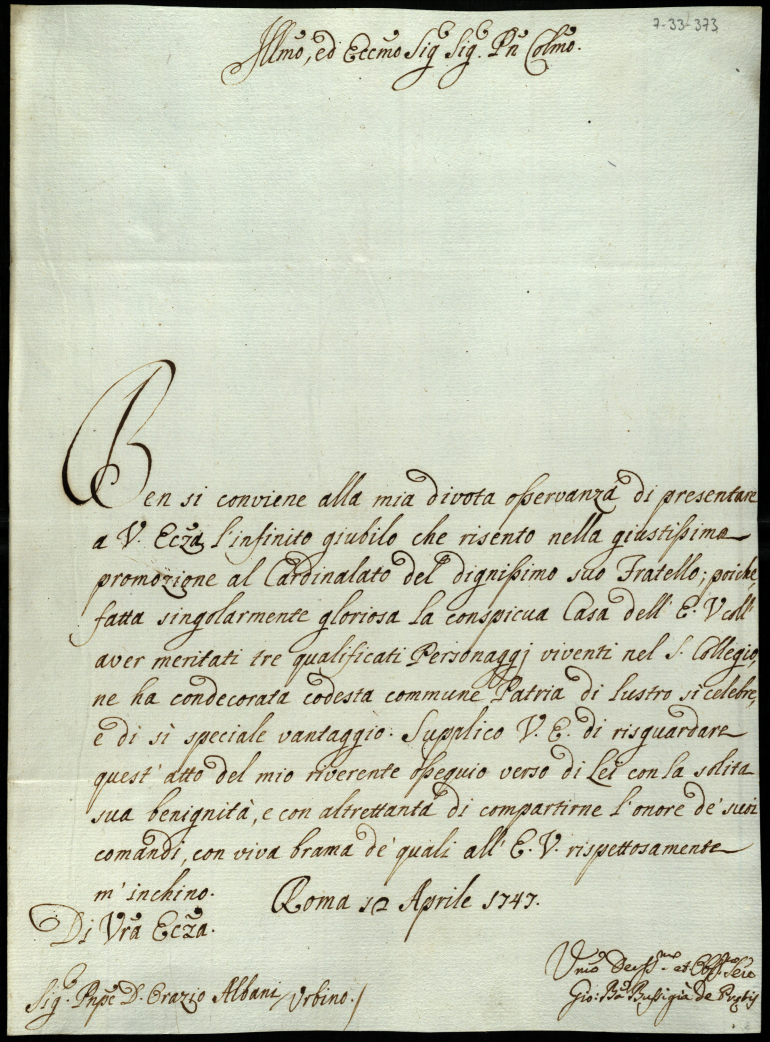 7-33-373
Illmo, ed Eccmo Sig Sig. Pn Colmo.
Ben si conviene alla mia divota osservanza di presentare
a V. Ecza l'infinito giubilo che risento nella giustissima
promozione al Cardinalato del dignissimo suo Fratello; poiche
fatta singolarmente gloriosa la conspicua Casa dell' E. V coll'
aver meritati tre qualificati Personaggj viventi nel S. Collegio,
ne ha condecorata codesta commune Patria di lustro sì celebre,
e di sì speciale vantaggio. Supplico V. E. di risguardare
quest' atto del mio riverente ossequio verso di Lei con la solita
sua benignità, e con altrettanta di compartirne l'onore de' suoi
comandi, con viva brama de' quali all' E. V. rispettosamente
m' inchino. Roma 12 Aprile 1747.
Di Vra Ecza.
Sig. Pnpe D. Orazio Albani Urbino.
Gio: Ba